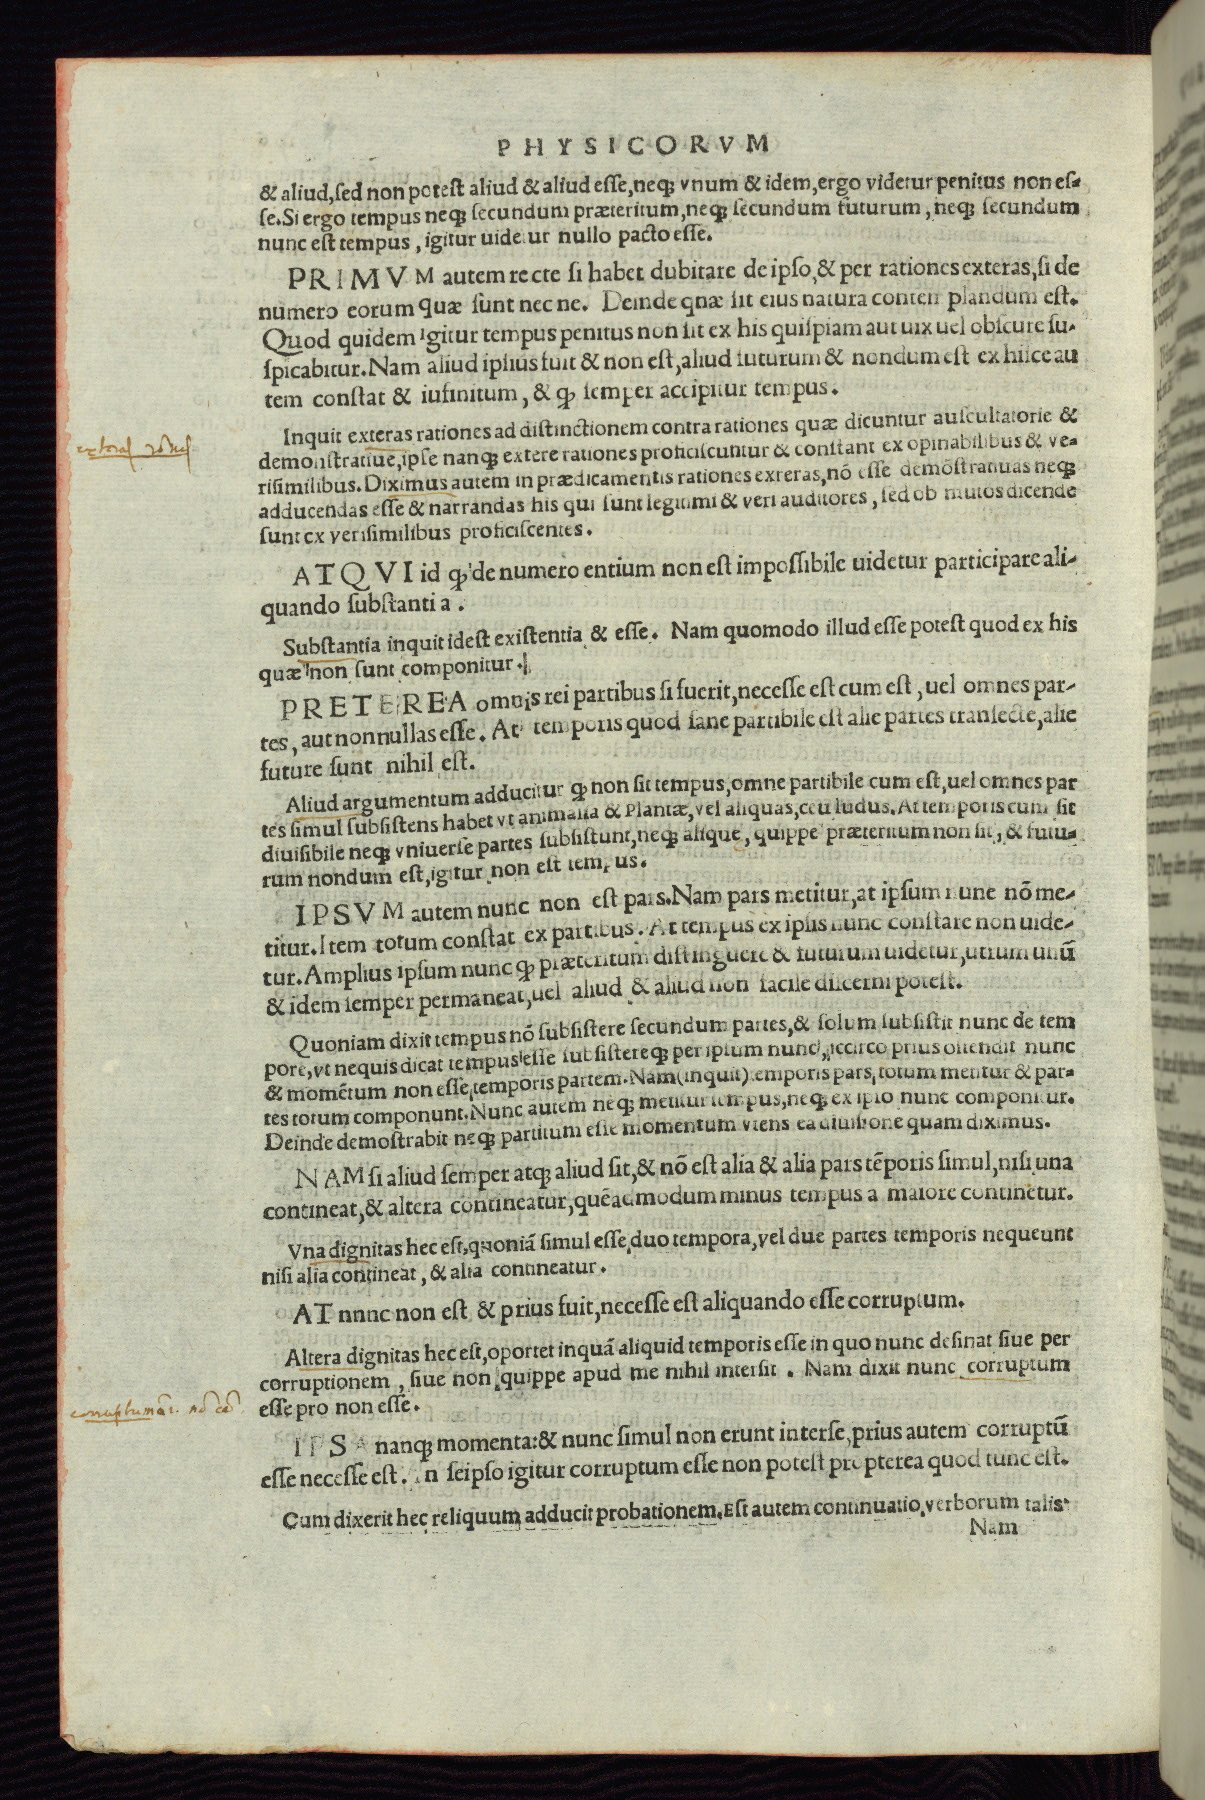 PHYSICORVM
& aliud, sed non potest aliud & aliud esse, neq; vnum & idem, ergo videtur penitus non es-
se. Si ergo tempus neq; secundum præteritum, neq; secundum futurum, neq; secundum
nunc est tempus, igitur uidetur nullo pacto esse.
PRIMVM autem recte si habet dubitare de ipso, & per rationes exteras, si de
numero eorum quæ sunt nec ne. Deinde qnæ sit eius natura contem plandum est.
Quod quidem igitur tempus penitus non sit ex his quispiam aut uix uel obscure su-
spicabitur. Nam aliud ipsius fuit & non est, aliud futurum & nondum est ex hisce au
tem constat & iufinitum, & ꝙ semper accipitur tempus.
Inquit exteras rationes ad distinctionem contra rationes quæ dicuntur auscultatorie &
exteras rōnes
demonstratiue, ipse nanq; extere rationes proficiscuntur & constant ex opinabilibus & ve-
risimilibus. Diximus autem in prædicamentis rationes exreras, nō esse demōstratiuas neq;
adducendas esse & narrandas his qui sunt legitimi & veri auditores, sed ob mutos dicende
sunt ex verisimilibus proficiscentes.
ATQVI id ꝙ de numero entium non est impossibile uidetur participare ali-
quando substantia.
Substantia inquit idest existentia & esse. Nam quomodo illud esse potest quod ex his
quæ non sunt componitur.
PRETEREA omnis rei partibus si fuerit, necesse est cum est, uel omnes par-
tes, aut nonnullas esse. At temporis quod sane partibile est alie partes transecte, alie
future sunt nihil est.
Aliud argumentum adducitur ꝙ non sit tempus, omne partibile cum est, uel omnes par
tes simul subsistens habet vt animalia & Plantæ, vel aliquas, ceu ludus. At temporis cum sit
diuisibile neq; vniuerse partes subsistunt, neq; alique, quippe præteritum non sit, & futu-
rum nondum est, igitur non est tempus.
IPSVM autem nunc non est pars. Nam pars metitur, at ipsum nunc nō me-
titur. Item totum constat ex partibus. At tempus ex ipsis nunc constare non uide-
tur. Amplius ipsum nunc ꝙ præteritum distinguere & futurum uidetur, utrum unū
& idem semper permaneat, uel aliud & aliud non facile discerni potest.
Quoniam dixit tempus nō subsistere secundum partes, & solum subsistit nunc de tem
pore, vt nequis dicat tempus esse subsistereq; per ipsum nunc, iccirco prius ostendit nunc
& momētum non esse temporis partem. Nam (inquit) temporis pars, totum metitur & par-
tes totum componunt. Nunc autem neq; metitur tempus, neq; ex ipso nunc componitur.
Deinde demostrabit neq; partitum esse momentum vtens ea diuisione quam diximus.
NAM si aliud semper atq; aliud sit, & nō est alia & alia pars tēporis simul, nisi una
contineat, & altera contineatur, quēadmodum minus tempus a maiore continetur.
Vna dignitas hec est, quoniā simul esse duo tempora, vel due partes temporis nequeunt
nisi alia contineat, & alia contineatur.
AT nnnc non est & prius fuit, necesse est aliquando esse corruptum.
Altera dignitas hec est, oportet inquā aliquid temporis esse in quo nunc desinat siue per
corruptionem, siue non quippe apud me nihil intersit. Nam dixit nunc corruptum
esse pro non esse.
IPSA nanq; momenta: & nunc simul non erunt interse, prius autem corruptū
esse necesse est. In seipso igitur corruptum esse non potest propterea quod tunc est.
Cum dixerit hec reliquum adducit probationem. Est autem continuatio verborum talis
Nam